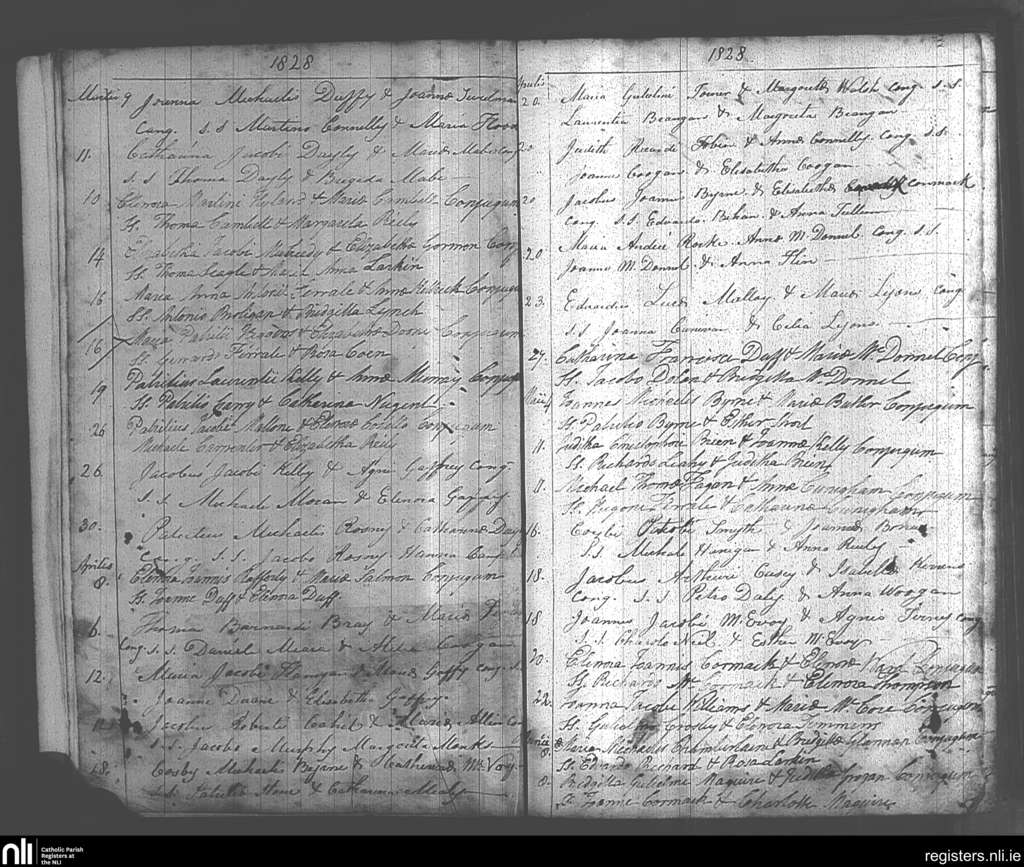 1828
Martii 9 Joanna Michaelis Duffy & Joannæ
Cong. S.S Martino Connelly & Maria Flood
11. Catharina Jacobi Dayly & Mariæ
S.S Thoma Dayly & Brigida Mabe
10 Elenora Martini Hyland & Mariæ Cambell Conjugum
Ss. Thoma Cambell & Margarita Riely
14 Elizabitha Jacobi & Elizabitha Gormon Conj
Ss. Thoma Seagle & Anna Larkin
16 Maria Anna Antonii Ferrale & Annæ Conjugum
Ss. Antonio & Bridgitta Lynch
16 Maria Patritii & Elizabitha Conjugum
Ss. Ferrale & Rosa Coen
19 Patritius Laurentii Kelly & Annæ Murray Conjugum
Ss. Patritio Carry & Catherina Nugent
26 Patritius Jacobi Mallone & Elenoræ Costello Conjugum
Michaele & Elizabitha Reily
26 Jacobus Jacobi Kelly & Agnes Gaffney Cong
S.S Michaele Moran & Elenora Gaffny
30. Patritius Michaelis Rooney & Catharinæ
Cong. S.S. Jacobo Rooney Hanna
Aprilis
8. Elenora Joannis Rafferty & Mariæ Salmon Conjugum
Ss. Joanne Duff & Elenora Duff.
6. Thoma Barnardi Bray & Mariæ
Cong S.S. Daniel Meara & Coogan
12. Maria Jacobi Flanigan & Mariæ Goffy Cong. S.
Joanne Duane & Elizabeth Goffey
Jacobus Roberti Cahil & Mariæ Allen Con
S.S. Jacobo Murphy Margaritta Monks
18. Cosby Michaelis Byrne & Catherinæ
S.S Patritio & Catharina Mealy
1828
Aprilis
20. Maria Gulielmi Tower & Margarita Walsh Cong. S.S.
Laurentia Beangan & Margarita Beangan
20 Judith Ricardi Tobin & Annæ Connelly Cong. S.S.
Joannes Coogan & Elisabetha Coogan
20 Jacobus Joannis Byrne & Elisabetha Cormack
Cong. S.S. Edwardo Behan & Anna Tullem
20 Maria Andrei Rorke Annæ McDonnel Cong. S.S.
Joannes McDonnel & Anna Flin
23. Edwardus Lucæ Malloy & Mariæ Lyons Cong
S.S Joanna & Celia Lyons
27. Catharina Francisci Duff & Mariæ McDonnel Conj
Ss. Jacobo Dolan & Bridgitta McDonnel
Maii 4 Joannes Michaelis Byrne & Mariæ Butler Conjugum
Ss. Patritio Byrne & Esther
11. Juditha Christophori Breen & Joannæ Kelly Conjugum
Ss. Richardo Leahy & Juditha Breen
11. Michael Thomæ Fagan & Annæ Cunigham Conjugum
Ss. Eugenio Ferrale & Catharina Cunigham
16. Cosby Jacobi Smyth & Joannæ
S.S Michale Hanegan & Anna Reiley
18. Jacobus Arthuri Casey & Isabella
Cong. S.S Petro Daly & Anna Woogan
18 Joannes Jacobi McEvoy & Agnes Cong
S.S. Charolo Neil & Esther McEvoy
20. Elenora Joannis Cormack & Elenoræ Conjugum
Ss. Richardo McCormack & Elenora Thompson
22. Joanna Jacobi Williams & Mariæ McCore Conjugum
Ss. Gulielmo Crosby & Elenora Timmons
Junii
8. Maria Michaelis Chamberlain & Bridgitta Glannan Conjugum
Ss. Edwardo & Rosa Larkin
8. Bridgitta Gulielmi Maguire & Juditha Grogan Conjugum
Ss. Joanne Cormack & Charlotte Maguire
nli
Catholic Parish
Registers at
the NLI
registers.nli.ie